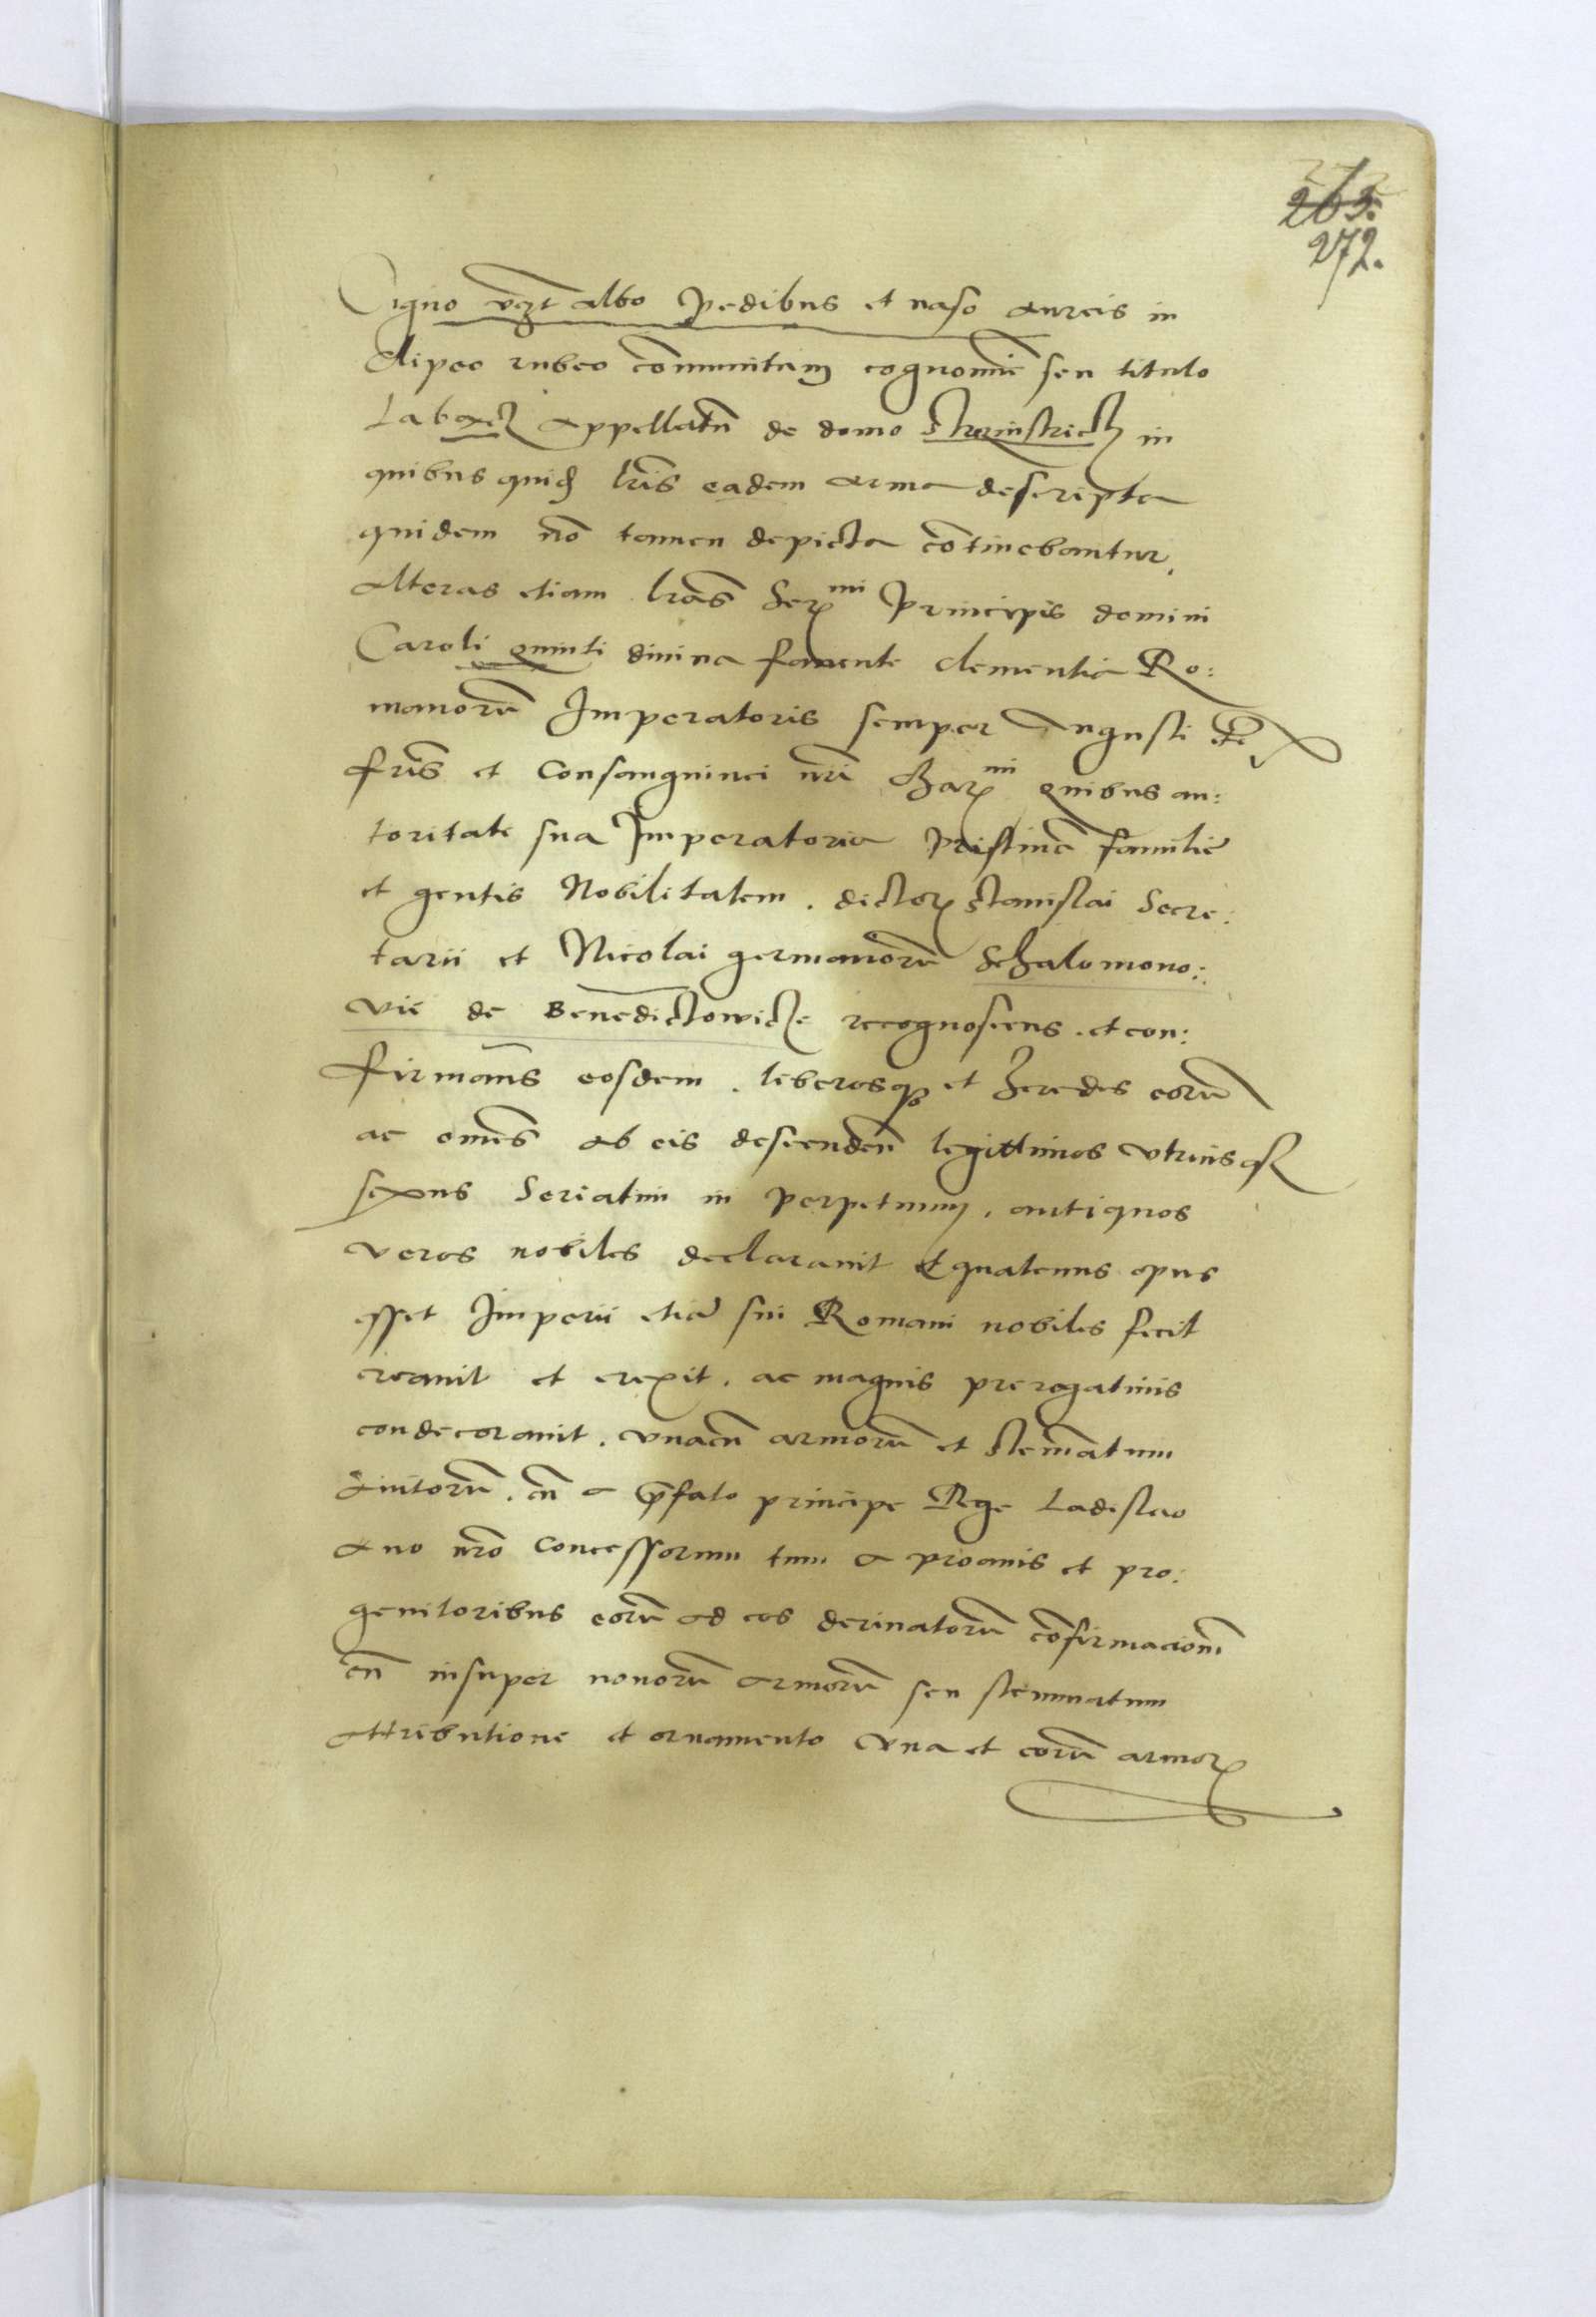 263.
272.
Cigno vczt albo pedibus et naso aureis in
clipeo rubeo comunitam cognomie seu titulo
appellatu de domo in
quibus quid lris eadem arma descripta
quidem no tamen depicta continebantur.
Alteras etiam lras Ser mi Principis domini
Caroli quinti divina favente clementia Ro:
manoru Imperatoris semper Augusti etc
fris et Consanguinei nri char mi quibus au:
toritate sua Imperatoria pristina familie
et gentis Nobilitatem. dictor Stanislai Secre:
tarii et Nicolai germanoru Schalomono:
vie de Benedictowicze recognoscens. et con:
firmans eosdem. liberosq et heredes eoru
ac omes ab eis descenden legittimos vtriusq
sexus Seriatim in perpetuum, antiquos
veros nobiles declaravit Et quatenus opus
esset Imperii etia sui Romani nobiles fecit
creavit et erexit. ac magnis prerogativis
condecoravit. vnacu armoru et stematum
avitoru. cu a pfato principe Rege Ladislao
Avo nro Concessorum tum a proavis et pro:
genitoribus eoru ad eos derivatoru confirmacione
cu insuper novoru armoru seu stemmatum
attributione et ornamento vna et eoru armor